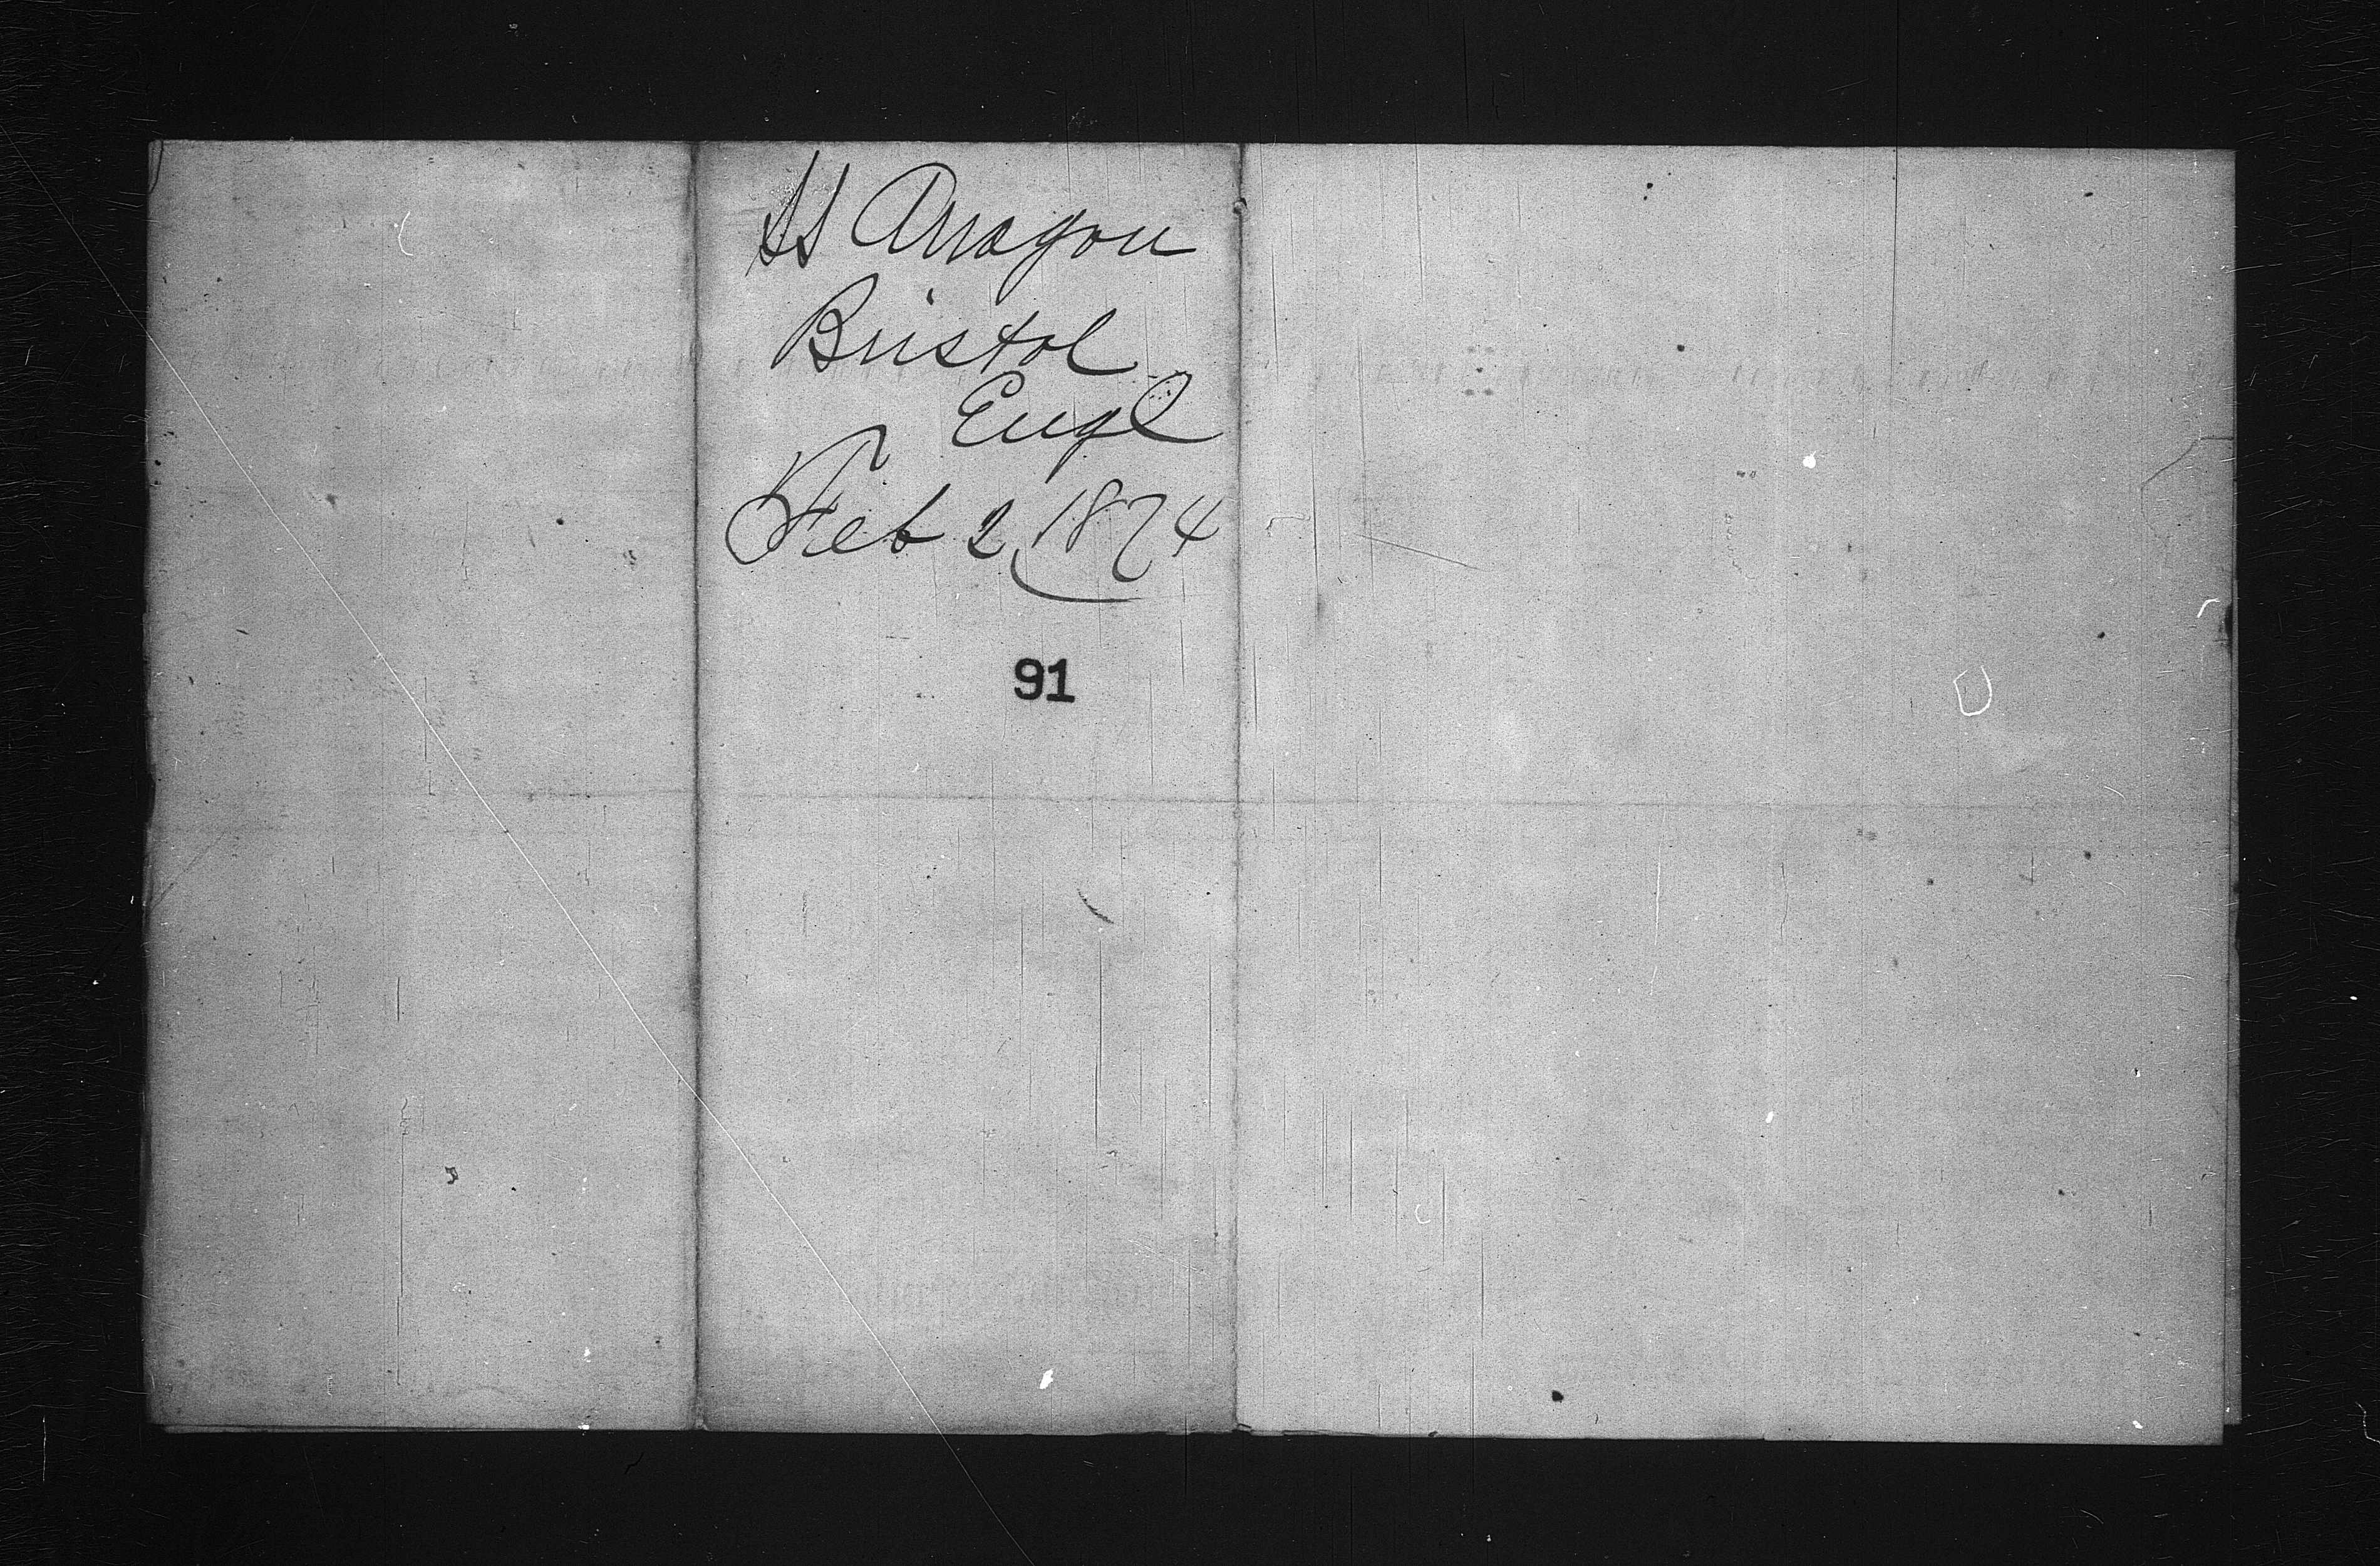 SS Arragon
Bristol
Engl
Feb 2 1874
91